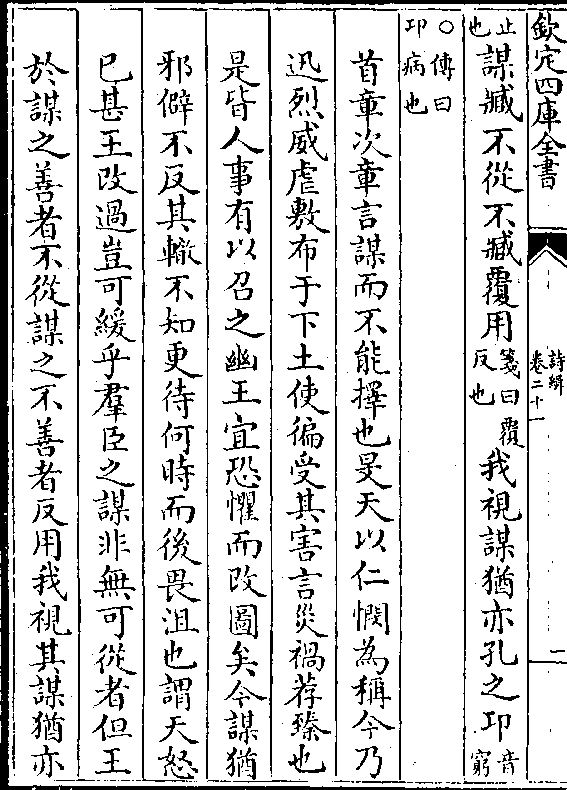 欽定四庫全書
詩緝
卷二十一
二
止
也
謀臧不從不臧覆用
箋曰覆
反也
我視謀猶亦孔之邛
音
窮
○傳曰
邛病也
首章次章言謀而不能擇也旻天以仁憫為稱今乃
迅烈威虐敷布于下土使徧受其害言災禍荐臻也
是皆人事有以召之幽王宜恐懼而改圖矣今謀猶
邪僻不反其轍不知更待何時而後畏沮也謂天怒
已甚王改過豈可緩乎羣臣之謀非無可從者但王
於謀之善者不從謀之不善者反用我視其謀猶亦